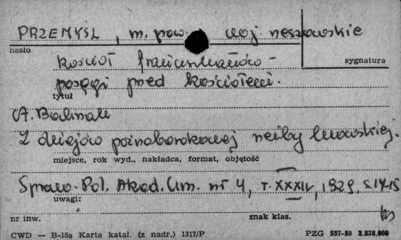 PRZEMYŚL, m. pow. woj rzeszowskie
hasło
sygnatura
kościół franciszkanów -
posągi przed kościołem.
tytuł
A. Bochnak
Z dziejów późnobarokowej rzeźby lwowskiej.
miejsce, rok wyd., nakładca, format, objętość
Spraw. Pol. Akad. Um. nr 4, T. XXXIV, 1929, s.14-15
uwagi:
nr inw.
znak klas.
CWD — B-18a Karta katal. (z nadr.) 1317/P
PZG 557-59